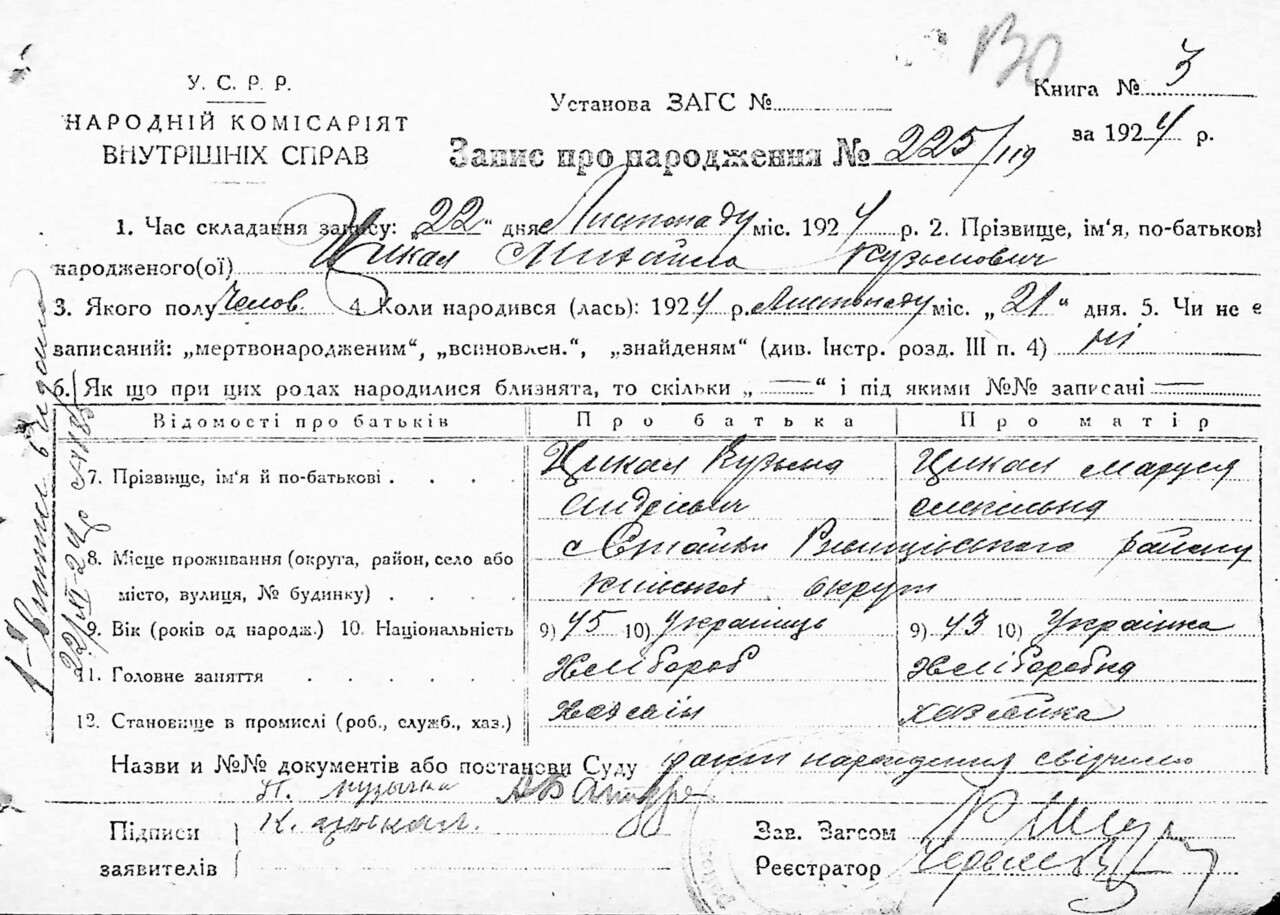 ВО
У. С. Р. Р.
НАРОДНІЙ КОМІСАРІЯТ
ВНУТРІШНІХ СПРАВ
Установа ЗАГС №
Книга № 3
за 1924 р.
Запис про народження № 225/119
1. Час складання запису: „22“ дня Листопаду міс. 1924 р. 2. Прізвище, ім'я, по-батькові
народженого(ої) Цикал Михайло Кузьмович
3. Якого полу Челов. 4. Коли народився (лась): 1924 р. Листопаду міс. „21“ дня. 5. Чи не є
записаний: „мертвонародженим“, „всиновлен.“, „знайденям“ (див. Інстр. розд. III п. 4) ні
6. Як що при цих родах народилися близнята, то скільки „ — “ і під якими №№ записані —
Відомості про батьків Про батька Про матір
7. Прізвище, ім'я й по-батькові . . . . Цикал Кузьма Цикал Маруся
Андрієвич
8. Місце проживання (округа, район, село або с Стайки Ржищівського району
місто, вулиця, № будинку) . . . . Київської округи
9. Вік (років од народж.) 10. Національність 9) 45 10) Українець 9) 43 10) Українка
11. Головне заняття . . . . . Хлібороб Хліборобка
12. Становище в промислі (роб., служб., хаз.) Хазяїн хазяйка
Назви и №№ документів або постанови Суду факт народження свідчимо
П. Музычка
Підписи К. Цыкал.
заявителів
Зав. Загсом
Реєстратор